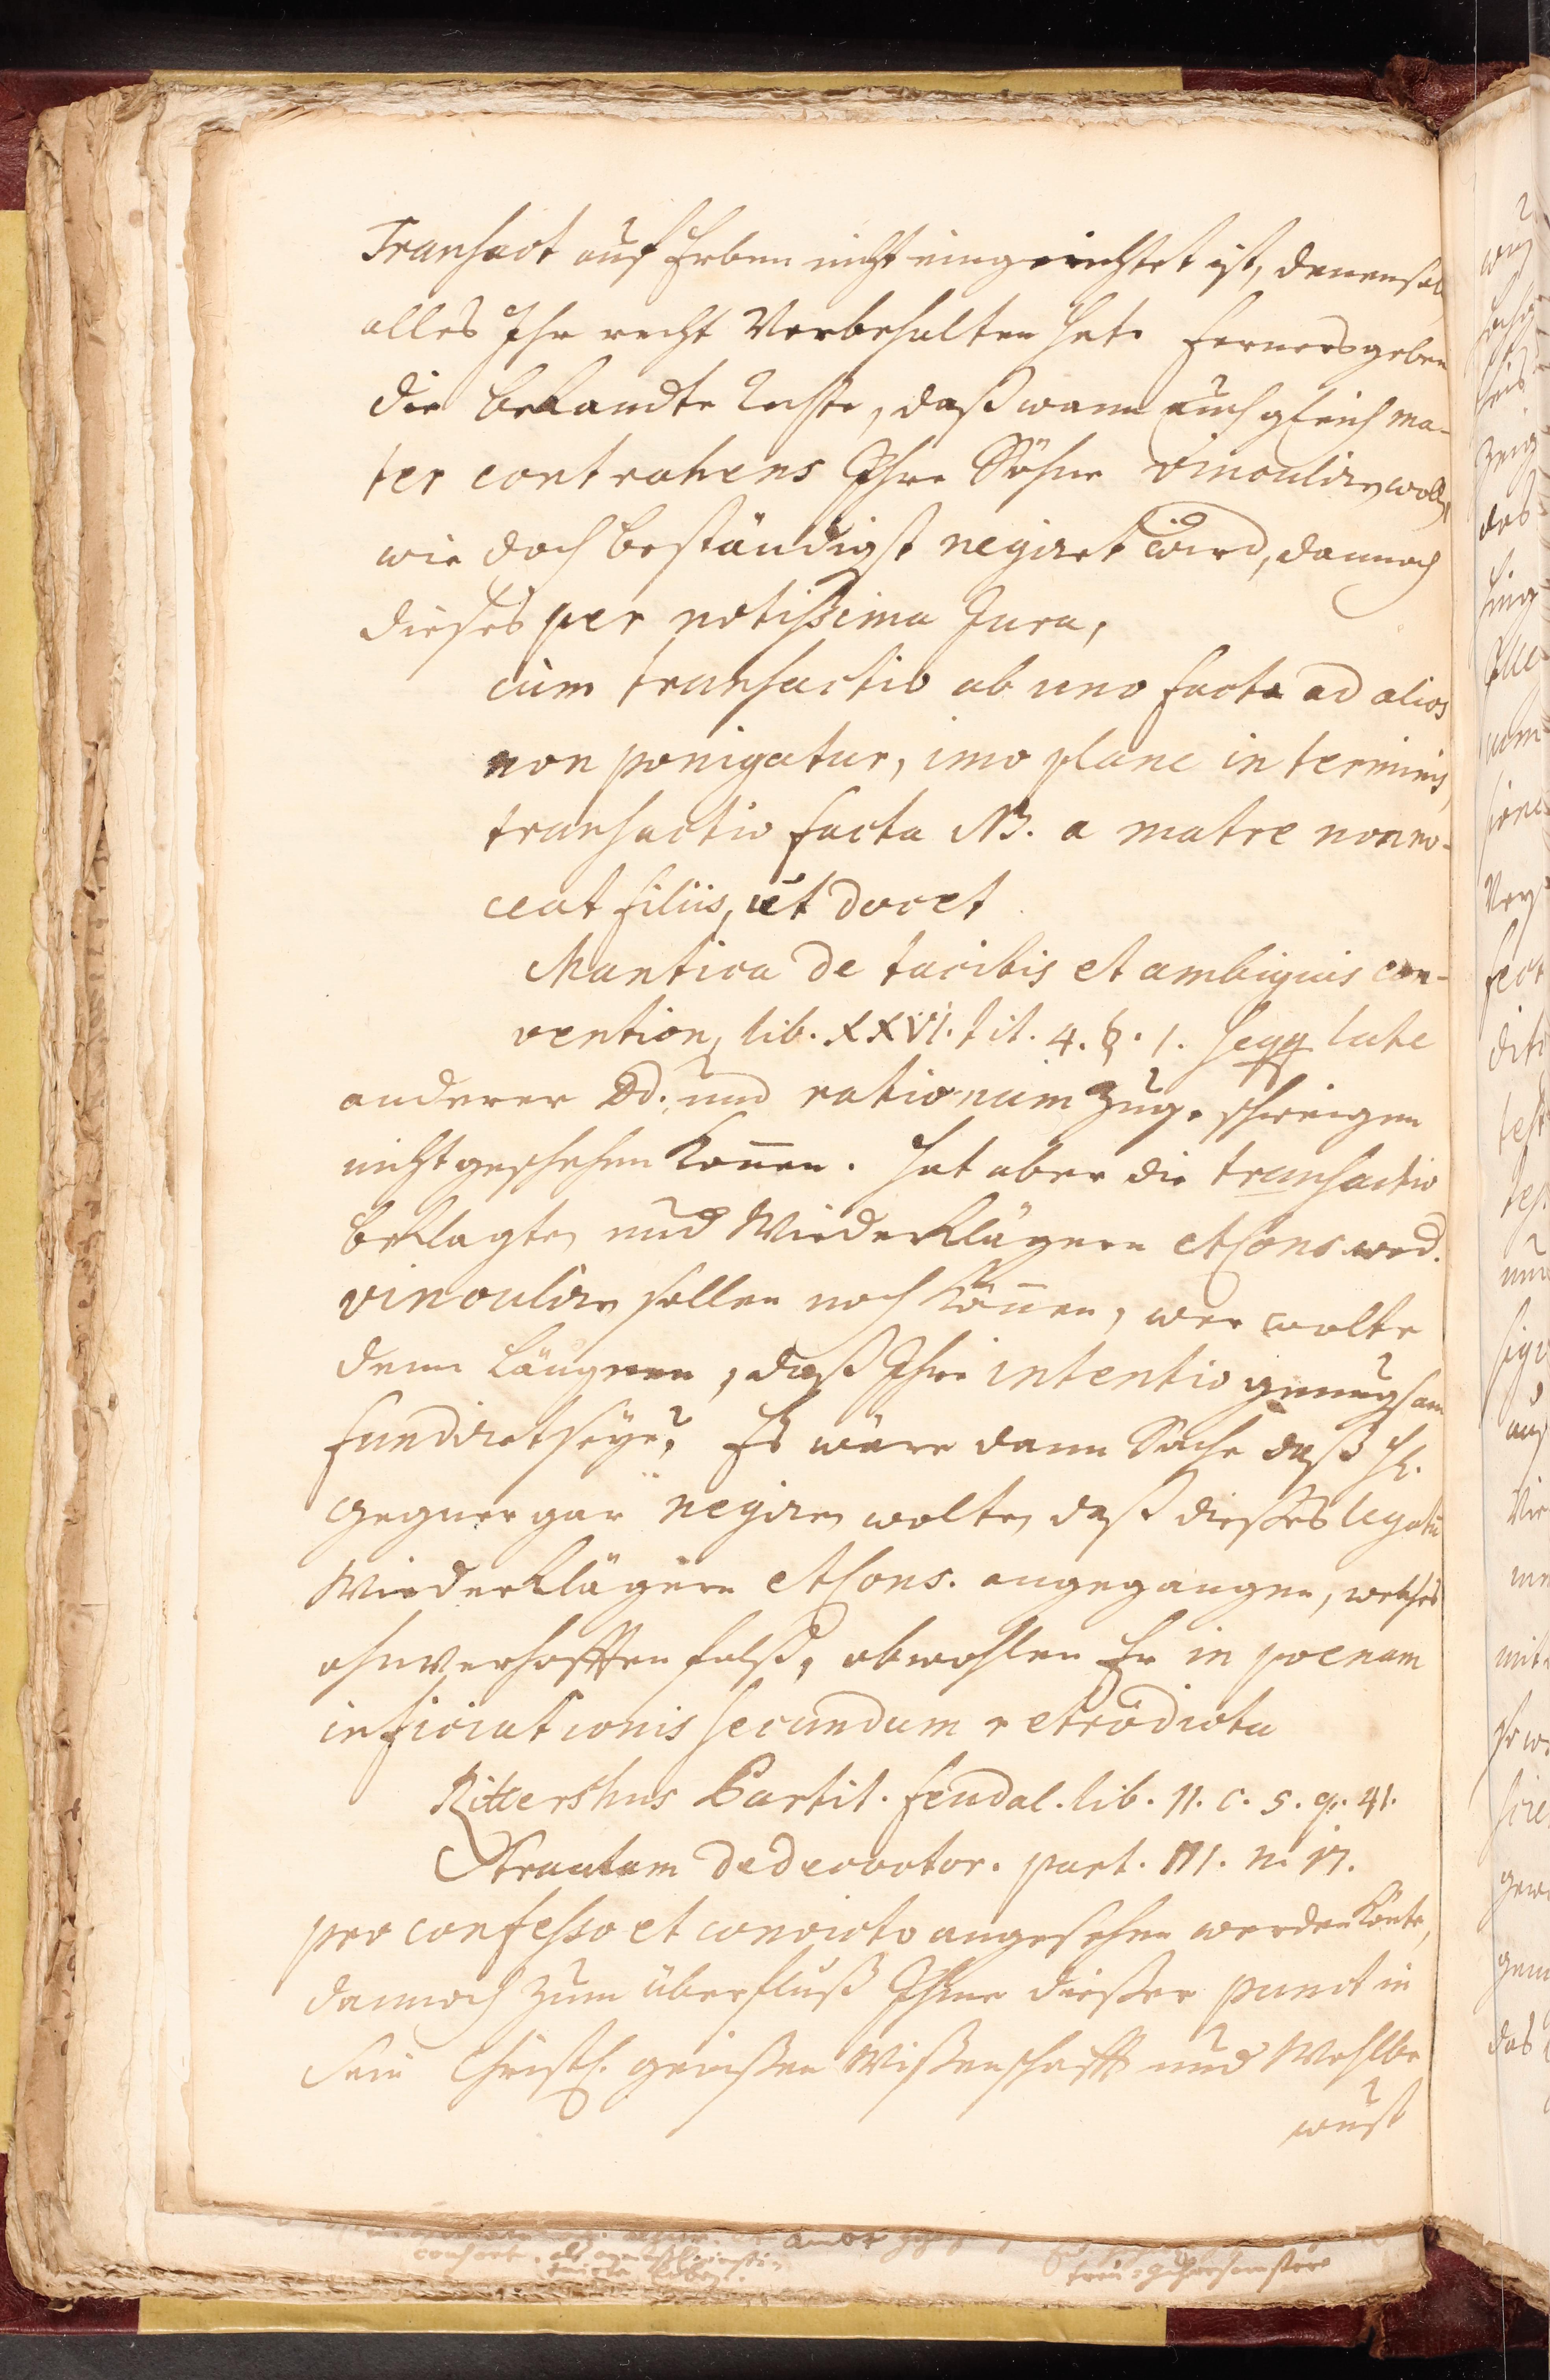 Transact auf Erben nicht eingerichtet ist, denensel
alles Ihr recht Vorbehalten hat. Ferners geben
die bekandte Rechte, daß wann auch gleich ma-
ter contrahens Ihre Söhne vinculiren wolle,
wie doch beständigst negiret wird, dannoch
dieses per notissima Jura,
cùm transactio ab uno facta ad alios
non porrigatur, imo plane in terminis,
transactio facta NB. a matre non no-
ceat filiis, ut docet
Mantica de tacitis et ambiguis con-
vention, lib. XXVI. tit. 4. §. 1. seqq late
anderer Dd. und rationum zug. schweigen
nicht geschehen können. Hat aber die transactio
beklagten und Wiederklägern et Cons. wed.
vinculiren sollen noch können, wer wolte
denn läugnen, daß Ihre intentio genugsam
fundiret seye? Es wäre dann Sache daß H.
Gegner gar negiren wolte, daß dießes legatū
Wiederklägern et Cons. angegangen, welches
ohnverhofften falß, obwohlen Er in poenam
inficiationis secundum retrodicta
Rittershus Partit. feudal. lib. 11. c. 5. q. 41.
part. III. n. 17.
pro confesso et convicto angesehen werden könte,
dannoch zum überfluß Ihme dießer punct in
Sein Christl. gewißen Wißenschafft und Wohlbe
wust